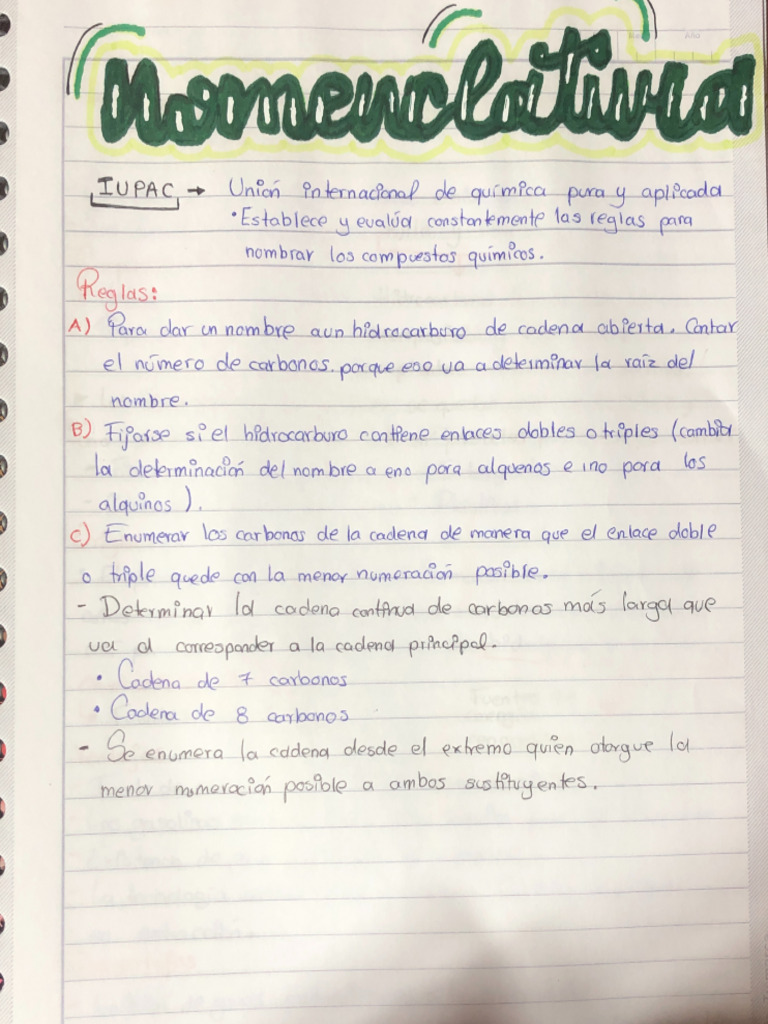 Nomenclatura
IUPAC → Unión internacional de química pura y aplicada
• Establece y evalúa constantemente las reglas para
nombrar los compuestos químicos.
Reglas:
A) Para dar un nombre a un hidrocarburo de cadena abierta. Contar
el número de carbonos. porque eso va a determinar la raíz del
nombre.
B) Fijarse si el hidrocarburo contiene enlaces dobles o triples (cambia
la determinación del nombre a eno para alquenos e ino para los
alquinos).
C) Enumerar los carbonos de la cadena de manera que el enlace doble
o triple quede con la menor numeración posible.
- Determinar la cadena continua de carbonos más larga que
va a corresponder a la cadena principal.
• Cadena de 7 carbonos
• Cadena de 8 carbonos
- Se enumera la cadena desde el extremo quien otorgue la
menor numeración posible a ambos sustituyentes.